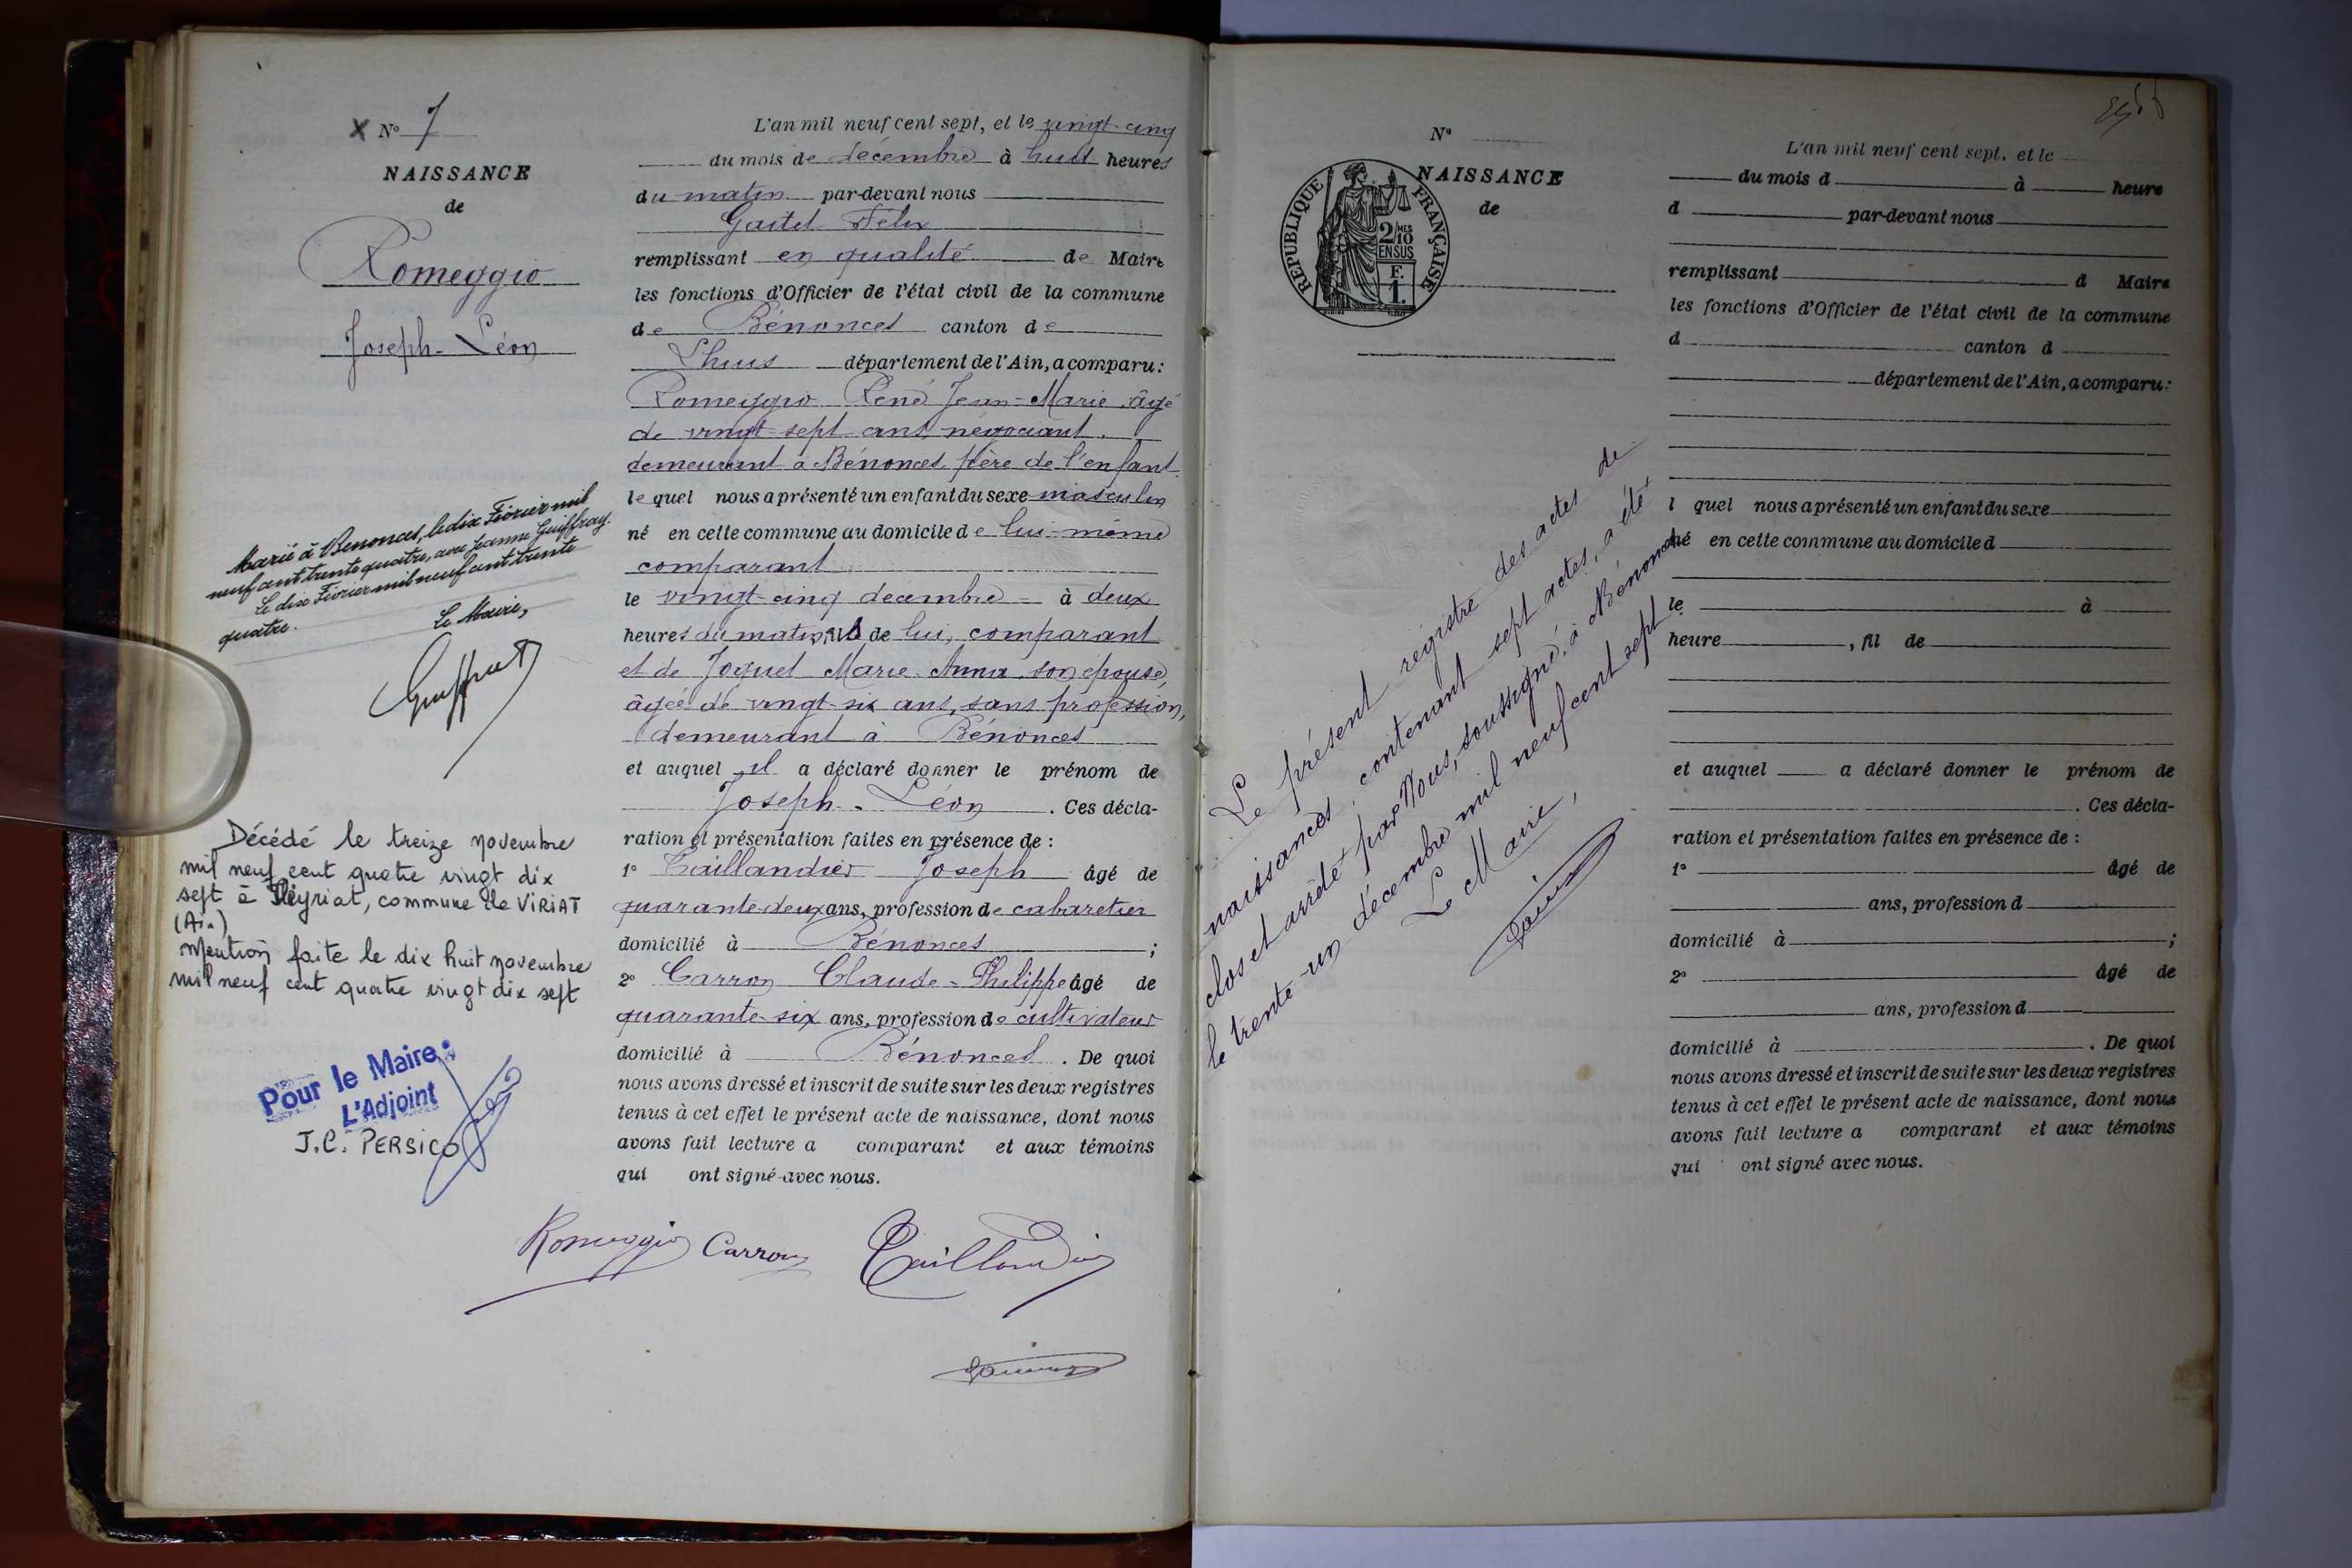 X N° 7
NAISSANCE
de
Romeggio
Joseph-Léon
Marié à Benonces, le dix Février mil
neuf cent trente quatre, avec Jeanne Guiffray.
Le dix Février mil neuf cent trente
quatre. Le Maire,
Décédé le treize novembre
mil neuf cent quatre vingt dix
sept à Fleyriat, commune de VIRIAT
(Ain)
Mention faite le dix huit novembre
mil neuf cent quatre vingt dix sept
Pour le Maire :
L'Adjoint
J.C. PERSICO
L'an mil neuf cent sept, et le vingt-cinq
du mois de décembre à huit heures
du matin par-devant nous
Félix
remplissant en qualité de Maire
les fonctions d'Officier de l'état civil de la commune
de Bénonces canton de
Lhuis département de l'Ain, a comparu :
Romeggio René Jean-Marie, âgé
de vingt-sept ans, négociant,
demeurant à Bénonces, père de l'enfant
lequel nous a présenté un enfant du sexe masculin
né en cette commune au domicile de lui-même
comparant
le vingt-cinq décembre à deux
heures du matin, fils de lui, comparant
et de Joguet Marie-Anna, son épouse,
âgée de vingt-six ans, sans profession,
demeurant à Bénonces
et auquel il a déclaré donner le prénom de
Joseph-Léon. Ces décla-
ration et présentation faites en présence de :
1° Taillandier Joseph âgé de
quarante-deux ans, profession de cabaretier
domicilié à Bénonces ;
2° Carron Claude-Philippe âgé de
quarante-six ans, profession de cultivateur
domicilié à Bénonces. De quoi
nous avons dressé et inscrit de suite sur les deux registres
tenus à cet effet le présent acte de naissance, dont nous
avons fait lecture a comparant et aux témoins
qui ont signé avec nous.
Romeggio Carron Taillandier
N°
NAISSANCE
de
REPUBLIQUE FRANÇAISE
2/10 MES
EN SUS
F.
1.
Le présent registre des actes de
naissances, contenant sept actes, a été
clos et arrêté par Nous, soussigné, à Bénonces
le trente-un décembre mil neuf cent sept.
Le Maire,
L'an mil neuf cent sept, et le
du mois d à heure
d par-devant nous
remplissant d Maire
les fonctions d'Officier de l'état civil de la commune
d canton d
département de l'Ain, a comparu :
l quel nous a présenté un enfant du sexe
né en cette commune au domicile d
le à
heure , fil de
et auquel a déclaré donner le prénom de
. Ces décla-
ration et présentation faites en présence de :
1° âgé de
ans, profession d
domicilié à ;
2° âgé de
ans, profession d
domicilié à . De quoi
nous avons dressé et inscrit de suite sur les deux registres
tenus à cet effet le présent acte de naissance, dont nous
avons fait lecture a comparant et aux témoins
qui ont signé avec nous.